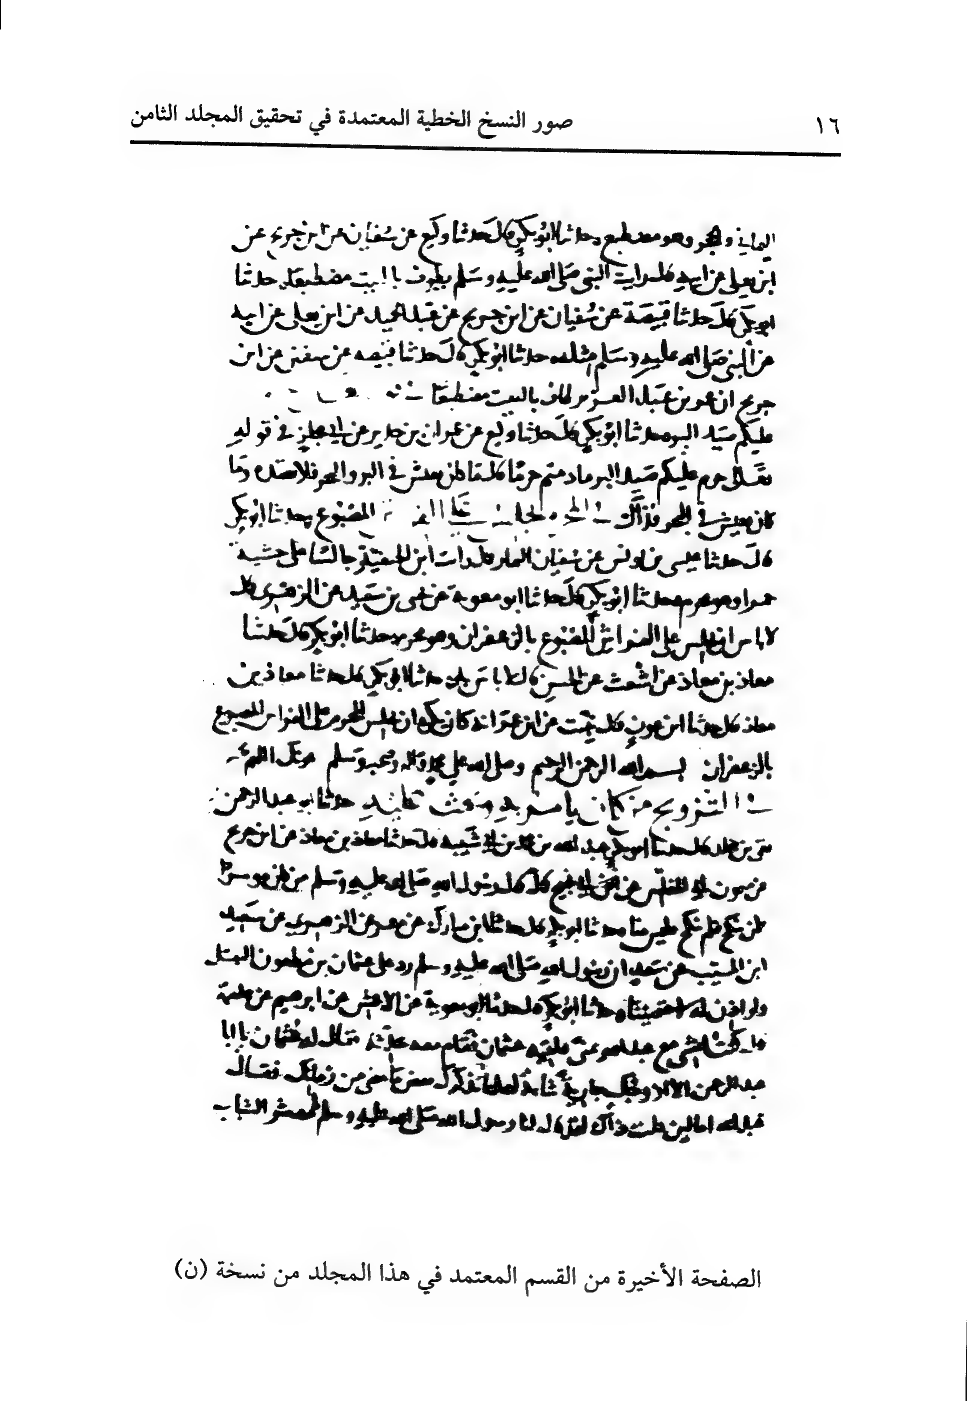 ١٦
صور النسخ الخطية المعتمدة في تحقيق المجلد الثامن
وهو مضطبع حدثنا ابو بكر قال حدثنا وكيع عن سفيان عن ابن جريج عن
ابن يعلى عن ابيه قال رايت النبي صلى الله عليه وسلم يطوف بالبيت مضطبعا حدثنا
ابو بكر قال حدثنا قبيصة عن سفيان عن ابن جريج عن عبد الحميد عن ابن يعلى عن ابيه
عن النبي صلى الله عليه وسلم مثله حدثنا ابو بكر قال حدثنا قبيصه عن سفين عن ابن
جريج ان عمر بن عبد العزيز طاف بالبيت مضطبعا
عليكم صيد البر حدثنا ابو بكر قال حدثنا وكيع عن عمران بن حدير عن ابي مجلز في قوله
حرم عليكم صيد البر ما دمتم حرما قال ما كان يعيش في البر والبحر فلا تصده وما
كان يعيش في البحر فذاك المصبوغ حدثنا ابو بكر
قال حدثنا عيسى بن يونس عن سفيان قال رات ابن الحنفية جالسا على حشية
حمرا وهو محرم حدثنا ابو بكر قال حدثنا ابو معوية عن بن سعيد عن الزهري قال
لا باس ان يجلس على الفراش المصبوغ بالزعفران وهو محرم حدثنا ابو بكر قال حدثنا
معاذ بن معاذ عن اشعث عن الحسن قال لا باس به حدثنا ابو بكر قال حدثنا معاذ بن
معاذ قال حدثنا ابن عون قال عن ابن عمر انه كان يكره ان يجلس المحرم على الفراش المصبوغ
بالزعفران بسم الله الرحمن الرحيم وصلى الله على محمد واله وصحبه وسلم
في التزويج من كان يامر به ويحث عليه حدثنا ابو عبد الرحمن
بقي بن مخلد قال حدثنا ابو بكر عبد الله بن محمد بن ابي شيبه قال حدثنا معاذ بن معاذ عن ابن جريج
عن ميمون ابي المغلس عن ابي نجيح قال قال رسول الله صلى الله عليه وسلم من كان موسرا
فلم ينكح فليس منا حدثنا ابو بكر قال حدثنا ابن مبارك عن معمر عن الزهري عن سعيد
ابن المسيب عن سعد ان رسول الله صلى الله عليه وسلم رد على عثمان بن مظعون التبتل
ولو اذن له لاختصينا حدثنا ابو بكر قال حدثنا ابو معوية عن الاعمش عن ابرهيم عن علقمة
قال كنت امشي مع عبد الله بمنى فلقيه عثمان فقام معه يحدثه فقال له عثمان يابا
عبد الرحمن الا ازوجك جارية شابة لعلها تذكرك بعض ما مضى من زمانك فقال
عبد الله اما لين قلت ذاك لقد قال لنا رسول الله صلى الله عليه وسلم يا معشر الشباب
الصفحة الأخيرة من القسم المعتمد في هذا المجلد من نسخة (ن)